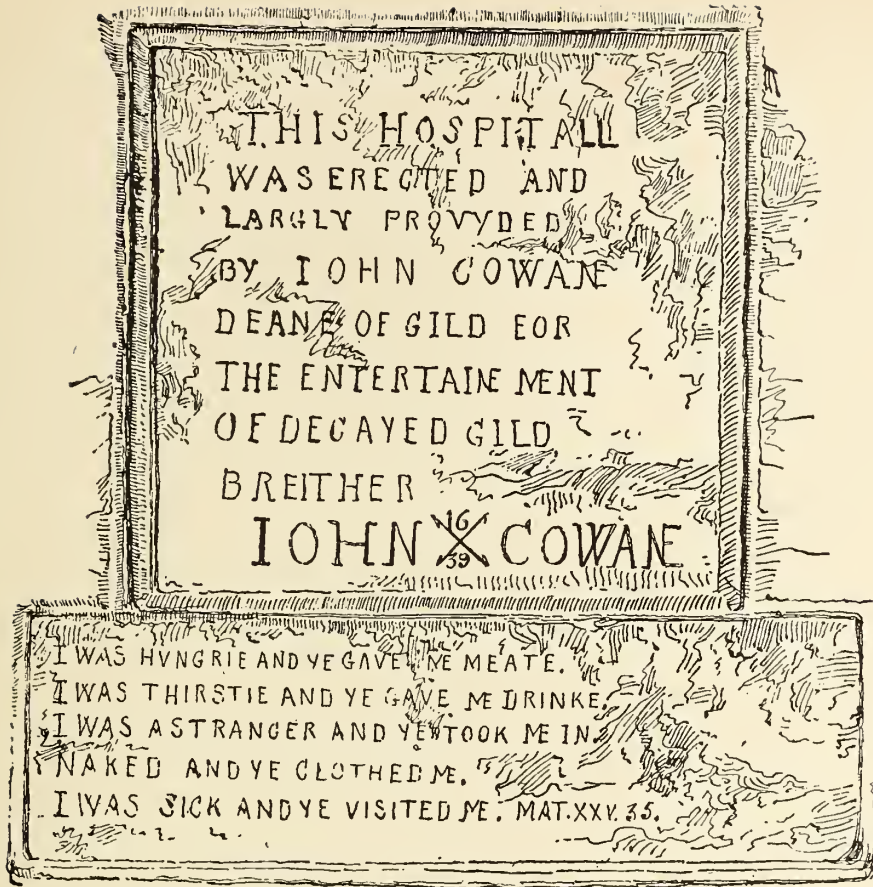 THIS HOSPITALL
WAS ERECTED AND
LARGLY PROVYDED
BY IOHN COWANE
DEANE OF GILD FOR
THE ENTERTAINEMENT
OF DECAYED GILD
BREITHER
IOHN 16 39 COWANE
I WAS HVNGRIE AND YE GAVE ME MEATE.
I WAS THIRSTIE AND YE GAVE ME DRINKE.
I WAS A STRANGER AND YE TOOK ME IN.
NAKED AND YE CLOTHED ME.
I WAS SICK AND YE VISITED ME. MAT. XXV. 35.